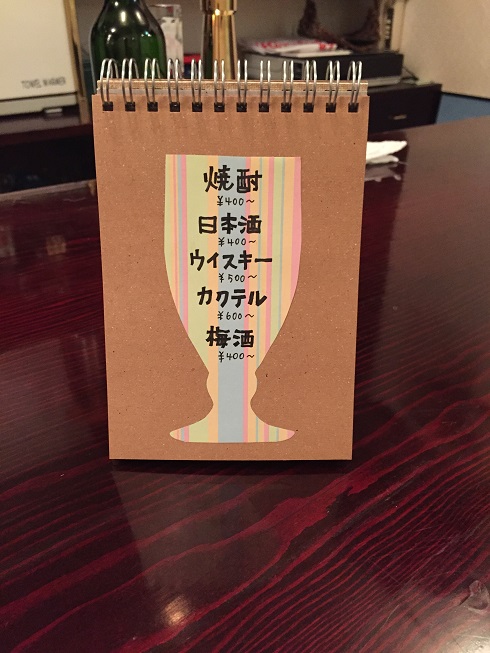 TOWEL WARMER
焼酎
¥400～
日本酒
¥400～
ウイスキー
¥500～
カクテル
¥600～
梅酒
¥400～